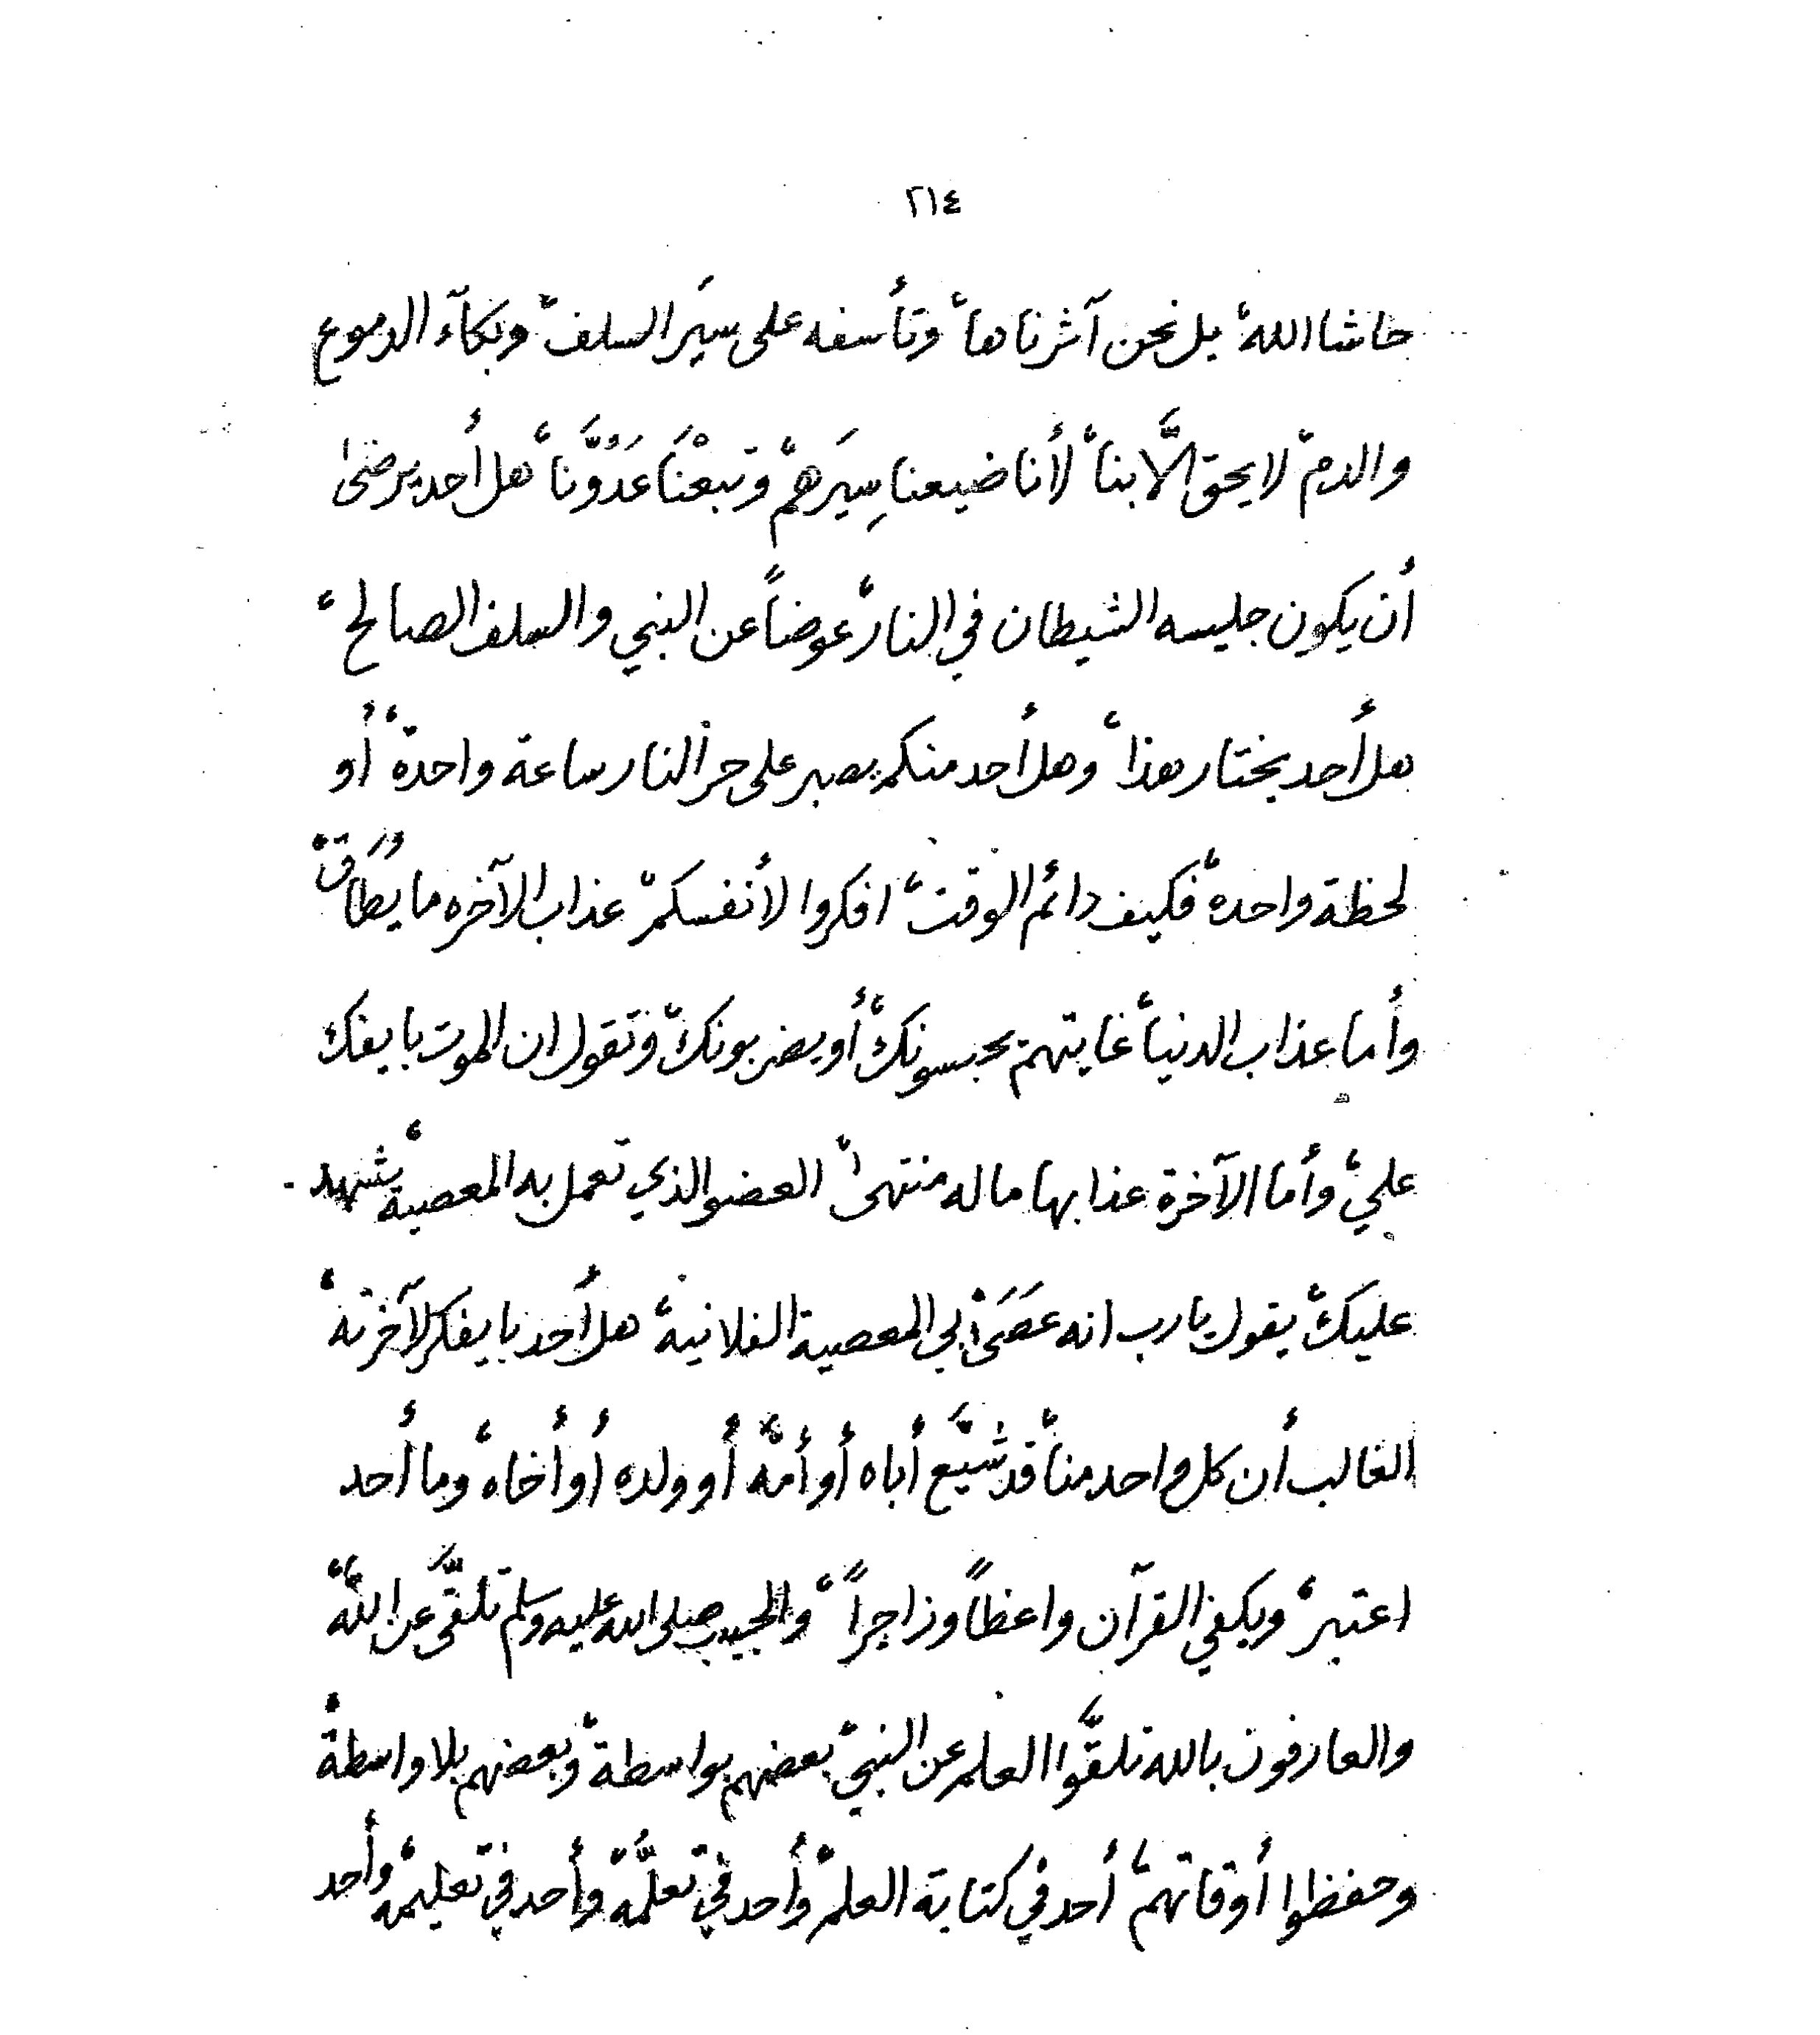 ٢١٤
حاشا الله، بل نحن آثرناها، وتأسفه على سيَر السلف، وبكآء الدموع
والدم، لا يحق الَّا بنا، لأنا ضيعنا سِيَرهم، وتبعْنَا عَدُوَّنا، هل أحد يرضى
أن يكون جليسه الشيطان في النار، عوضاً عن النبي والسلف الصالح،
هل أحد يختار هذا، وهل أحد منكم يصبر على حر النار ساعة واحدة، أو
لحظة واحدة، فكيف دائم الوقت، افكروا لأنفسكم، عذاب الآخره ما يُطَاق،
وأما عذاب الدنيا، غايتهم يحبسونك، أو يضربونك، وتقول ان الموت با يفك
علي، وأما الآخرة عذابها ما له منتهى، العضو الذي تعمل به المعصية، يشهد
عليك، يقول يا رب انه عَصَىْ بي المعصية الفلانية، هل أحد با يفكر لآخرته،
الغالب أن كل واحد منا، قد شيَّع أباه أو أمَّه أو ولده أو أخاه، وما أحد
اعتبر، ويكفي القرآن واعظاً وزاجراً، والحبيب صلى الله عليه وسلم تلقَّى عن الله،
والعارفون بالله تلقَّوا العلم عن النبي، بعضهم بواسطة، وبعضهم بلا واسطة،
وحفظوا أوقاتهم، أحد في كتابة العلم، وأحد في تعلُّمه، وأحد في تعليمه، وأحد